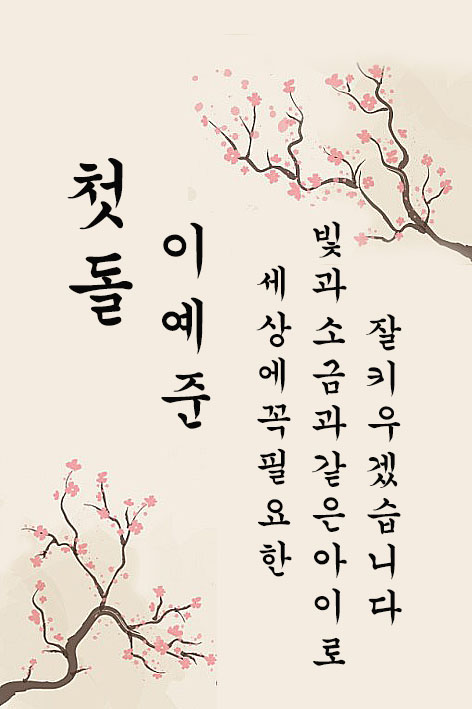 첫돌
이예준
세상에꼭필요한
빛과소금과같은아이로
잘키우겠습니다